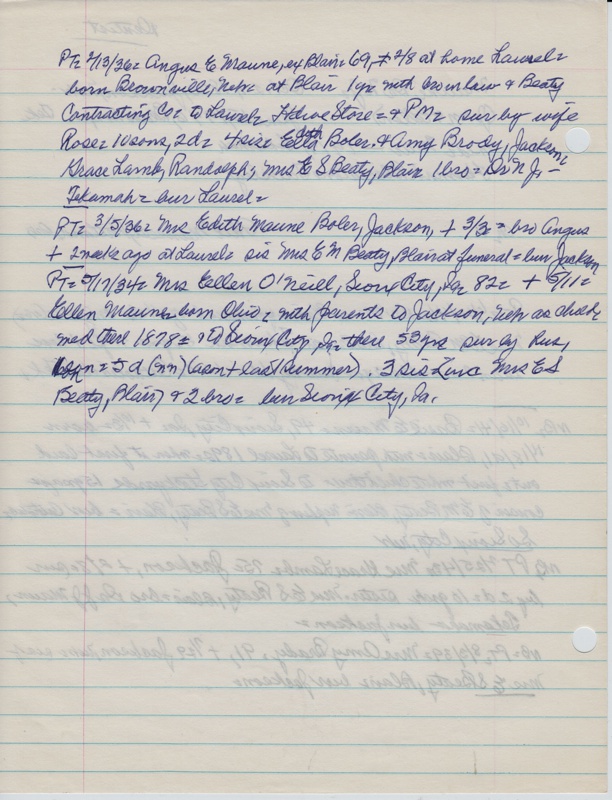 PT= 2/13/36= Angus E Maune, ex Blair= 69, + 2/8 at home Laurel=
born Brownville, Neb= at Blair 1 yr with broinlaw & Beaty
Contracting Co= to Laurel= Hdwe Store= & PM= sur by wife
Rose= 10 sons, 2d= 4 sis= Edith Boler, & Amy Brody, Jackson;
Grace Lamb, Randolph; Mrs E S Beaty, Blair 1 bro= Dr N J, -
Tekamah= bur Laurel=
PT= 3/5/36= Mrs Edith Maune Boler, Jackson, + 3/3= bro Angus
+ 2 weeks ago at Laurel= sis Mrs E M Beaty, Blair at funeral= bur Jackson
PT= 5/17/34= Mrs Ellen O'Neill, Sioux City, Ia= 82= + 5/11=
Ellen Maune= born Ohio= with parents to Jackson, Neb as child=
med there 1878= to Sioux City, Ia= there 53 yrs sur by hus,
son= 5 d (nn) (1 son + last summer). 3 sis Mrs E S
Beaty, Blair) & 2 bro= bur Sioux City, Ia.